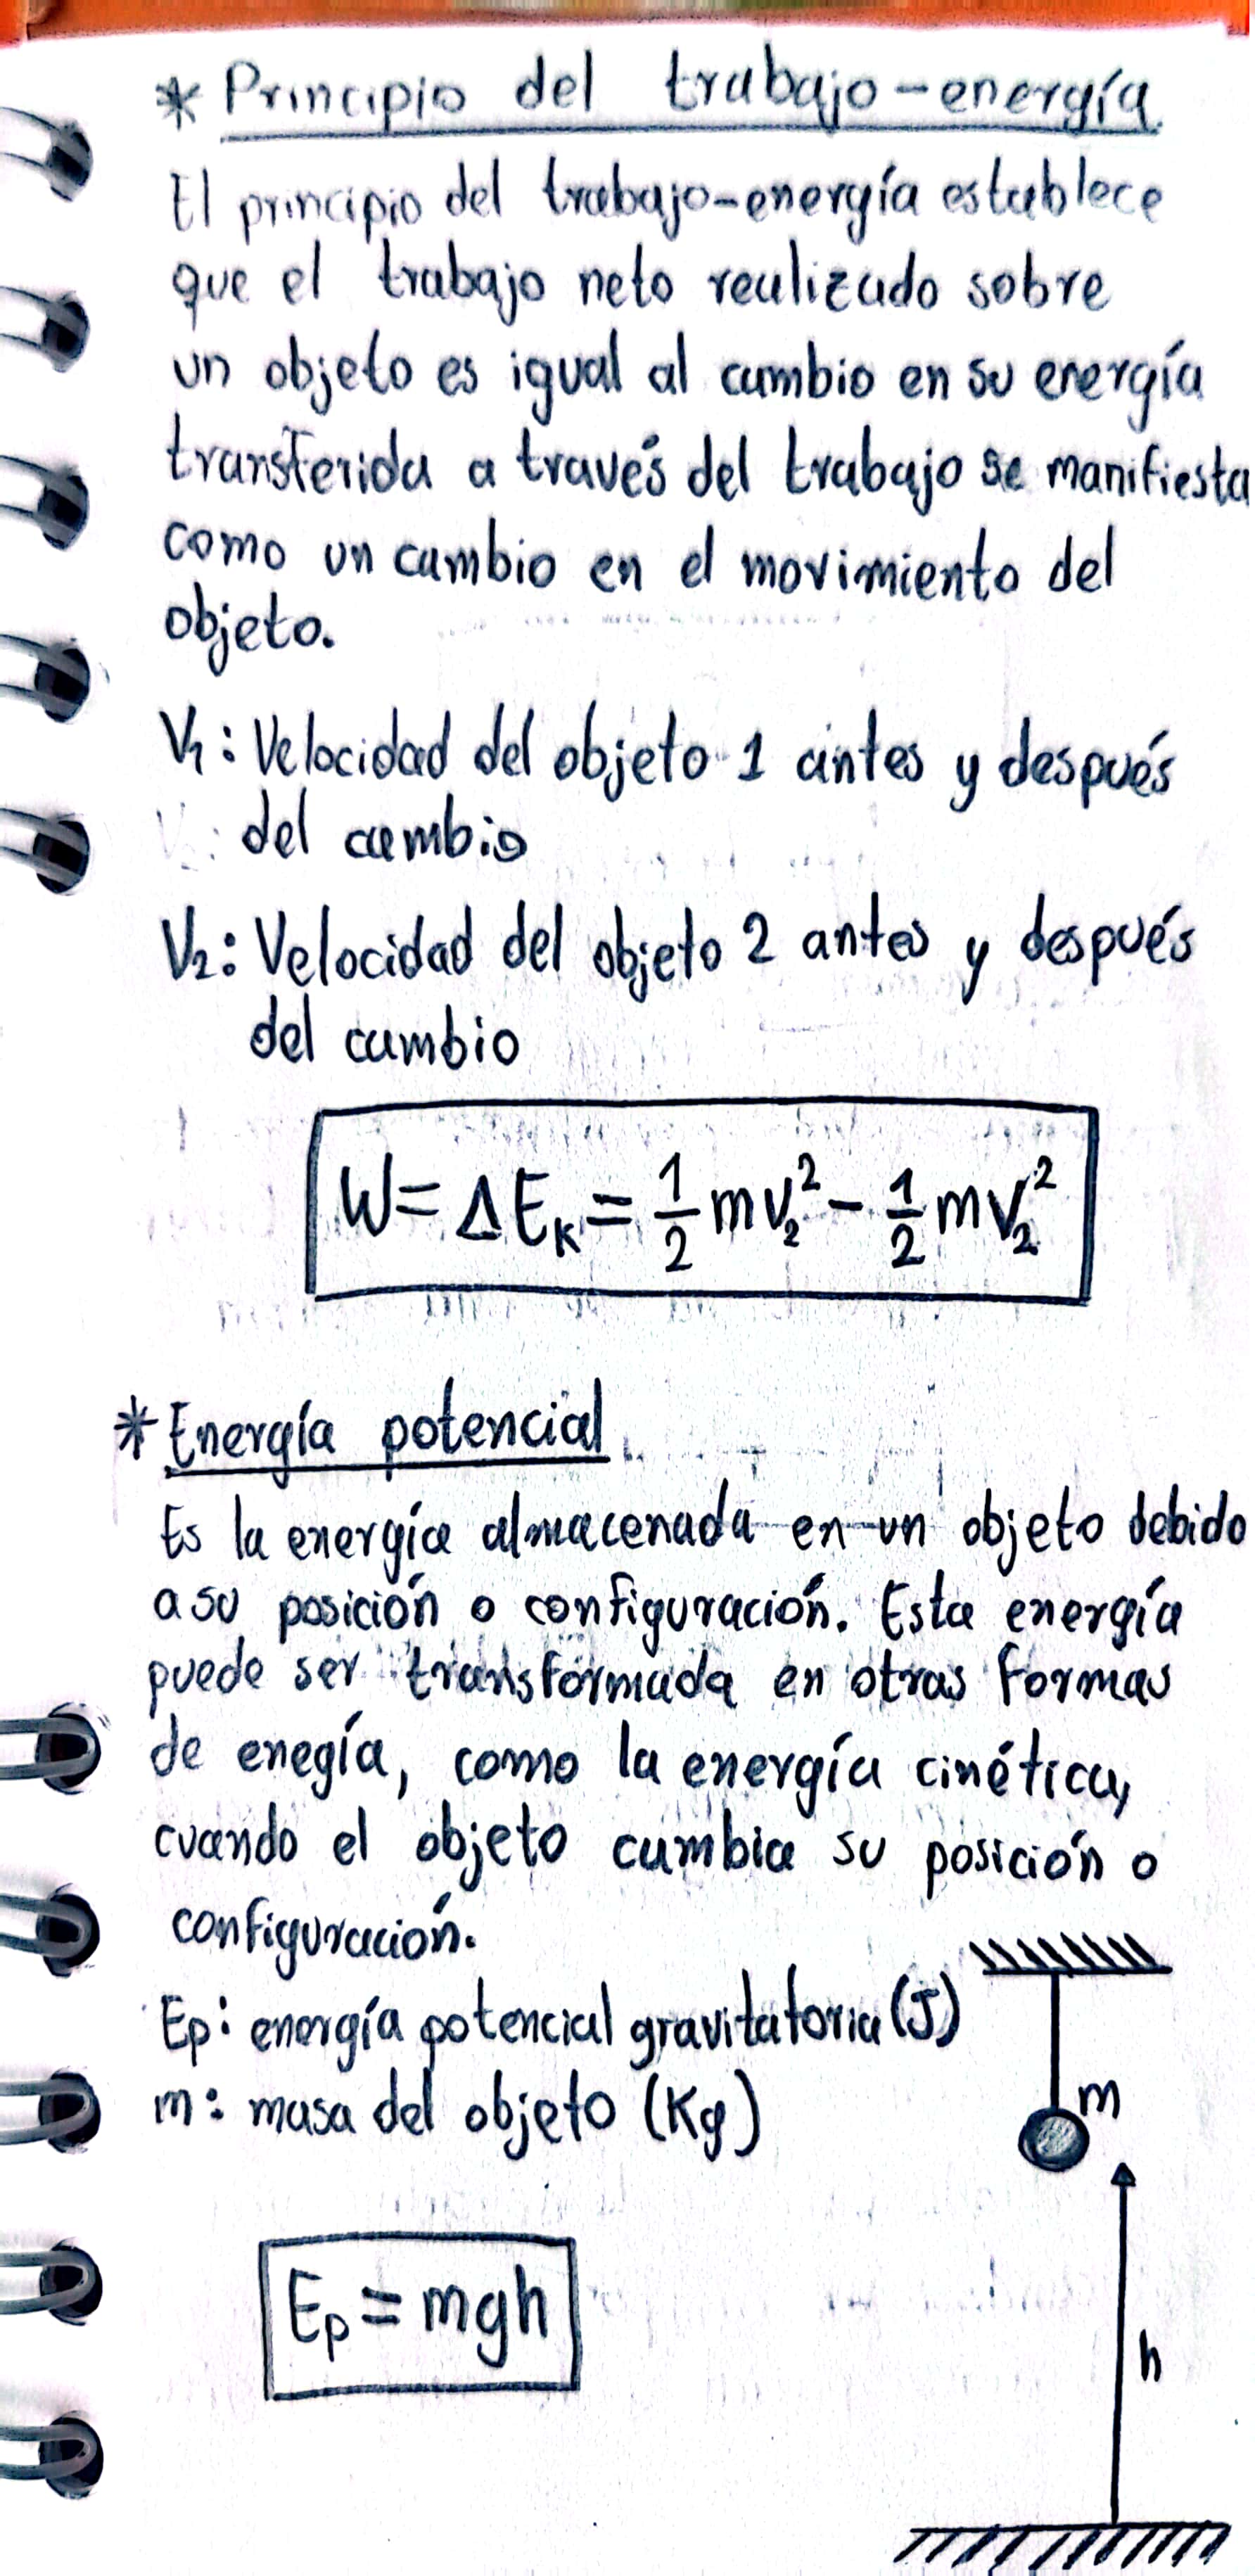 * Principio del trabajo-energía.
El principio del trabajo-energía establece
que el trabajo neto realizado sobre
un objeto es igual al cambio en su energía
transferida a través del trabajo se manifiesta
como un cambio en el movimiento del
objeto.
V₁: Velocidad del objeto 1 antes y después
del cambio
V₂: Velocidad del objeto 2 antes y después
del cambio
W = ΔEₖ = 1/2 mv₂² - 1/2 mv₂²
* Energía potencial
Es la energía almacenada en un objeto debido
a su posición o configuración. Esta energía
puede ser transformada en otras formas
de enegía, como la energía cinética,
cuando el objeto cambia su posición o
configuración.
Ep: energía potencial gravitatoria (J)
m: masa del objeto (Kg)
m
Eₚ = mgh
h